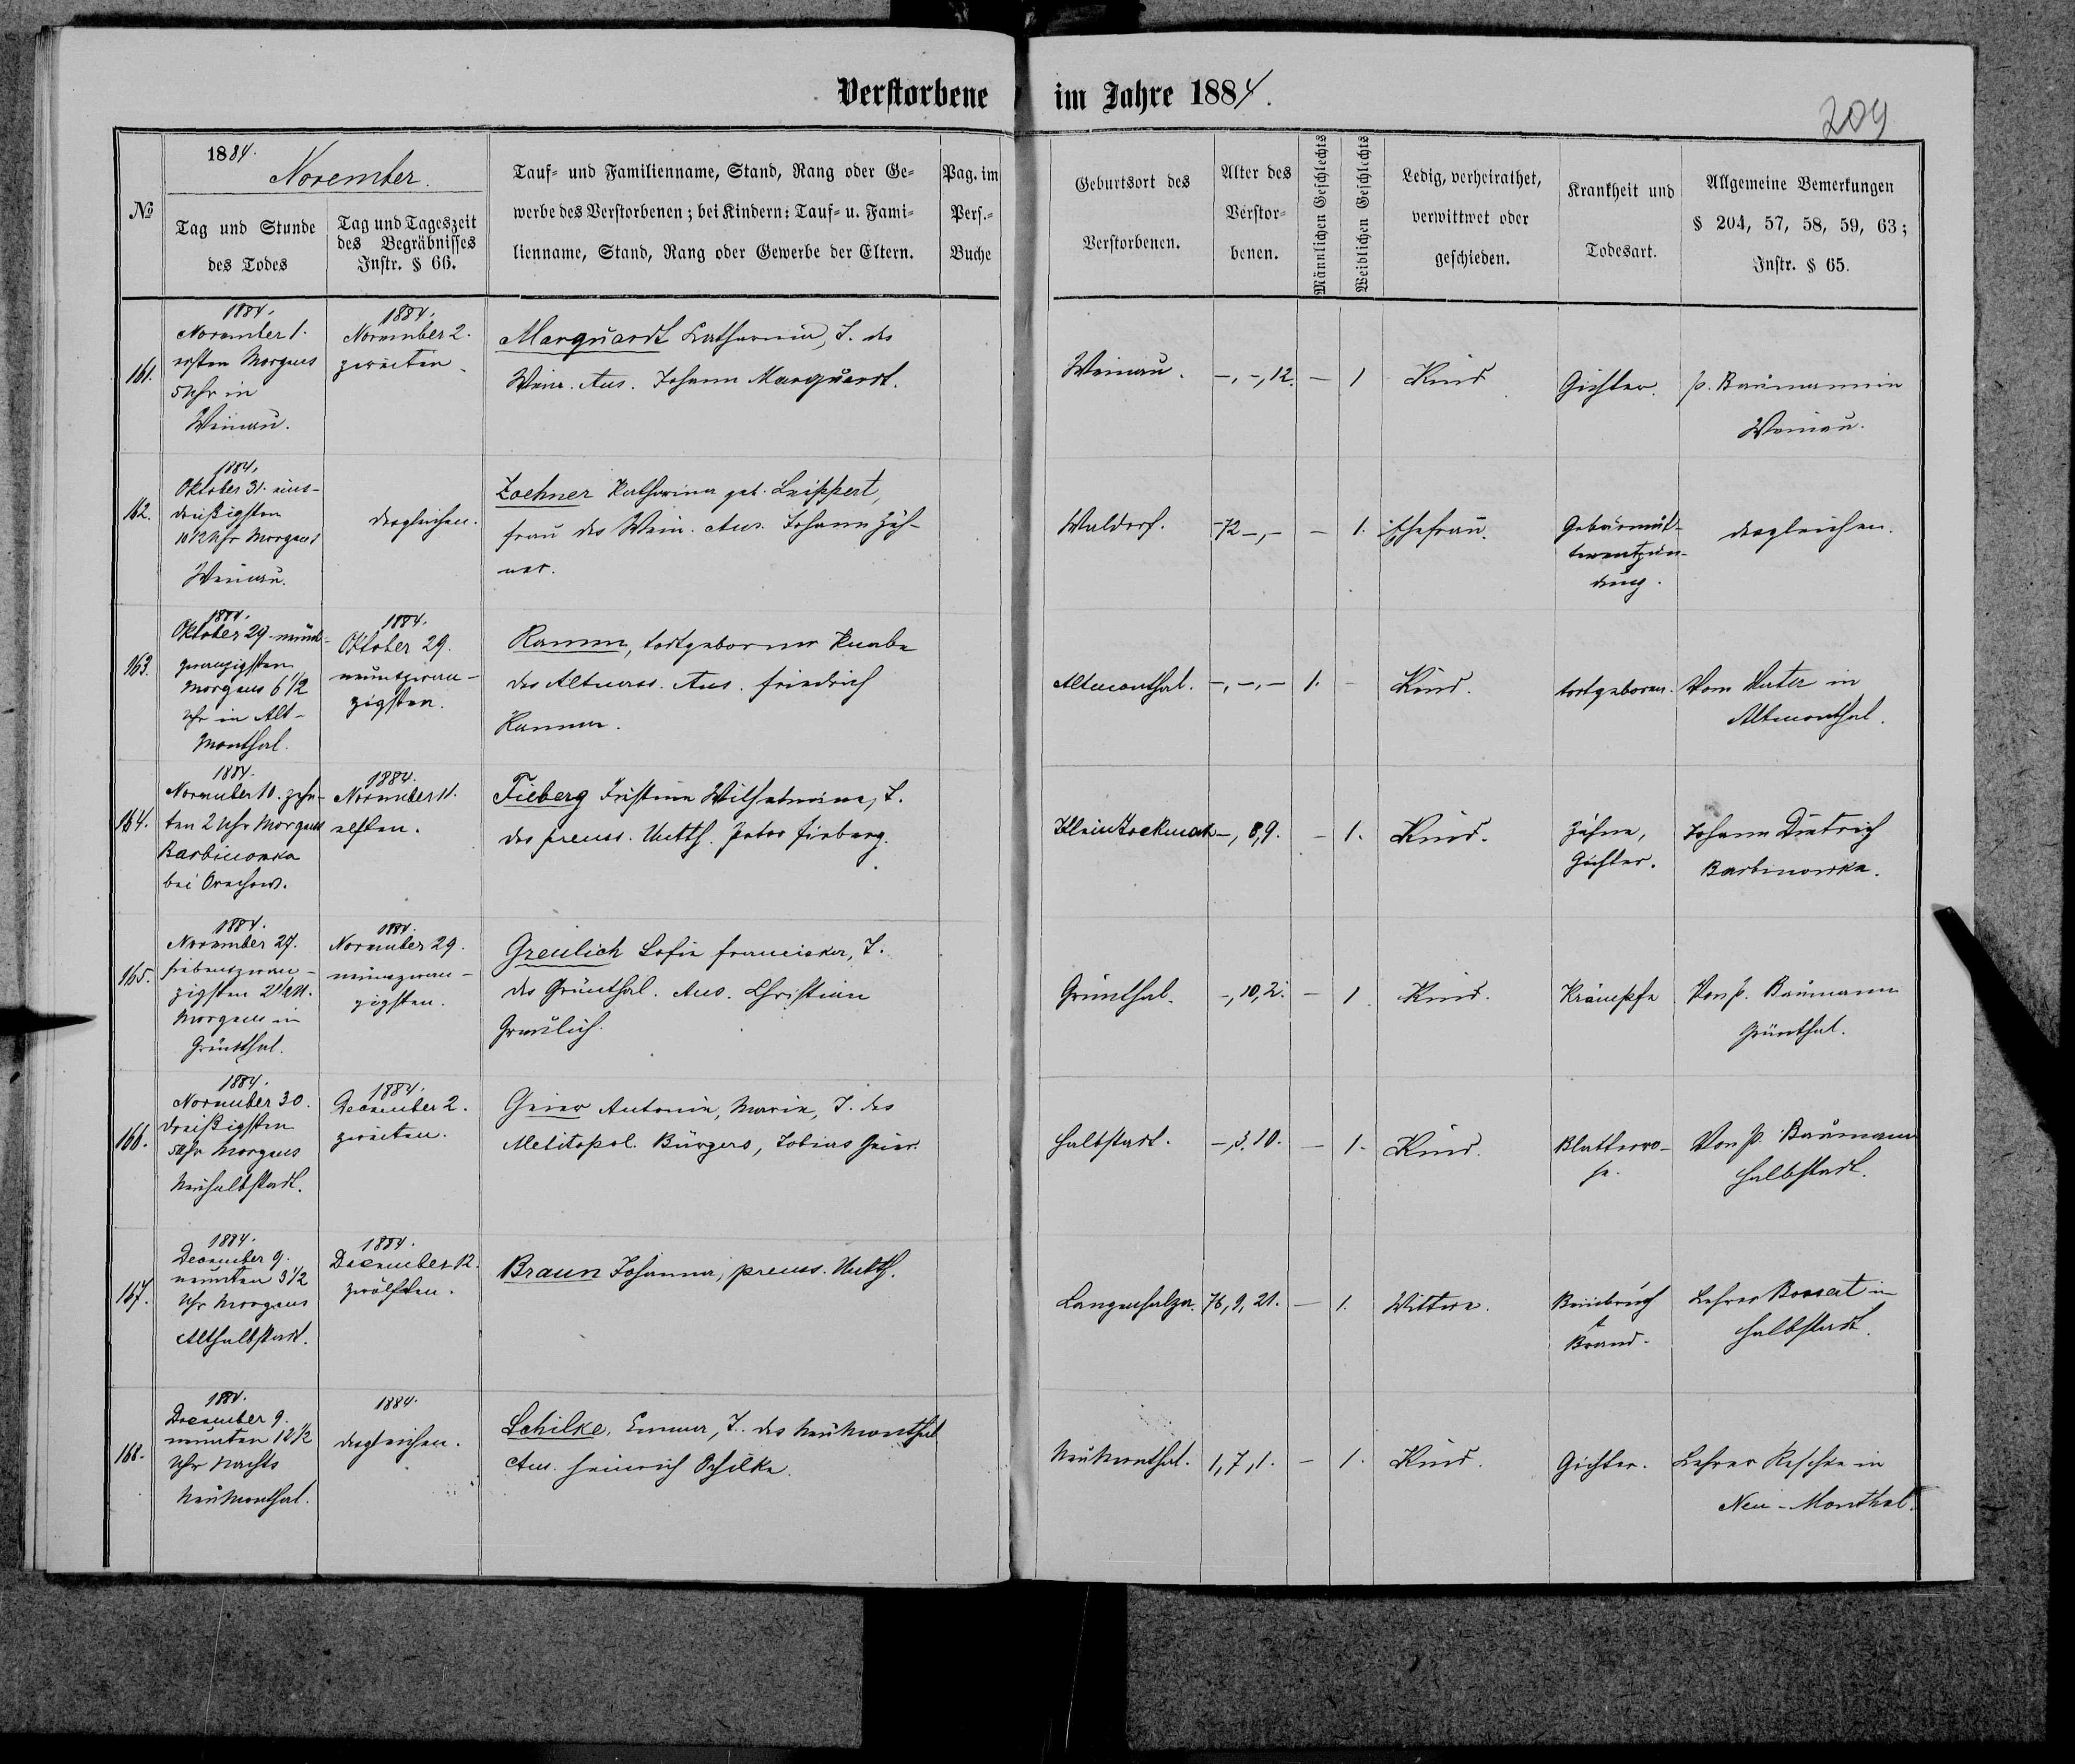 Verstorbene im Jahre 1884.
209
№
1884.
November.
Tag und Stunde
des Todes
Tag und Tageszeit
des Begräbnisses
Instr. § 66.
Tauf- und Familienname, Stand, Rang oder Ge-
werbe des Verstorbenen; bei Kindern: Tauf- u. Fami-
lienname, Stand, Rang oder Gewerbe der Eltern.
Pag. im
Pers.-
Buche
Geburtsort des
Verstorbenen.
Alter des
Verstor-
benen.
Männlichen Geschlechts
Weiblichen Geschlechts
Ledig, verheirathet,
verwittwet oder
geschieden.
Krankheit und
Todesart.
Allgemeine Bemerkungen
§ 204, 57, 58, 59, 63;
Instr. § 65.
161.
1884.
November 1.
ersten Morgens
5 Uhr in
Weinau.
1884.
November 2.
zweiten
Marquardt Catharina, T. des
Wein. Ans. Johann Marquardt.
Weinau.
-, -, 12.
-
1
Kind
Gichter.
p. Baumann in
Weinau.
162.
1884.
Oktober 31. eins-
dreißigsten
10 1/2 Uhr Morgens
Weinau.
desgleichen.
Zoehner Katharina geb. Leippert,
Frau des Wein. Ans. Johann Zöh-
ner.
Waldorf.
72 -, -
-
1.
Ehefrau.
Gebärmut-
terentzün-
dung.
desgleichen.
163.
1884.
Oktober 29. neun-
zwanzigsten
Morgens 6 1/2
Uhr in Alt-
Monthal.
1884.
Oktober 29.
neunzwan-
zigsten.
Ramm, todtgeborner Knabe
des Altmont. Ans. Friedrich
Ramm.
Altmonthal.
-, -, -
1.
-
Kind.
todtgeboren.
Vom Vater in
Altmonthal.
164.
1884.
November 10. zehn-
ten 2 Uhr Morgens
Barbinowka
bei Orechow.
1884.
November 11.
elften.
Fieberg Justina Wilhelmine, T.
des preuss. Untth. Peter Fieberg.
Klein Tockmak
-, 8, 9.
-
1.
Kind.
Zähne,
Gichter.
Johann Dietrich
Barbinowka.
165.
1884.
November 27.
siebenzwan-
zigsten 2 1/2 U.
Morgens in
Grünthal.
1884.
November 29.
neunzwan-
zigsten.
Greulich Sofie Franciska, T.
des Grünthal. Ans. Christian
Greulich.
Grünthal.
-, 10, 2.
-
1
Kind.
Krämpfe
Von p. Baumann
Grünthal.
166.
1884.
November 30.
dreißigsten
5 Uhr Morgens
Neuhalbstadt.
1884.
December 2.
zweiten.
Geier Antonie, Marie, T. des
Melitopol. Bürgers, Tobias Geier.
Halbstadt.
-, 3. 10.
-
1.
Kind.
Blatterro-
se.
Von p. Baumann
Halbstadt.
167.
1884.
December 9.
neunten 3 1/2
Uhr Morgens
Althalbstadt.
1884.
December 12.
zwölften.
Braun Johanna, preuss. Untth.
Langensalza.
76, 9, 21.
-
1.
Wittwe.
Beinbruch
+
Brand.
Lehrer Bossert in
Halbstadt.
168.
1884.
December 9.
neunten 12 1/2
Uhr Nachts
Neumonthal.
1884.
desgleichen.
Schilke, Emma, T. des Neu Monthal
Ans. Heinrich Schilke.
Neu Monthal.
1, 7, 1.
-
1.
Kind.
Gichter.
Lehrer Reschke in
Neu-Monthal.